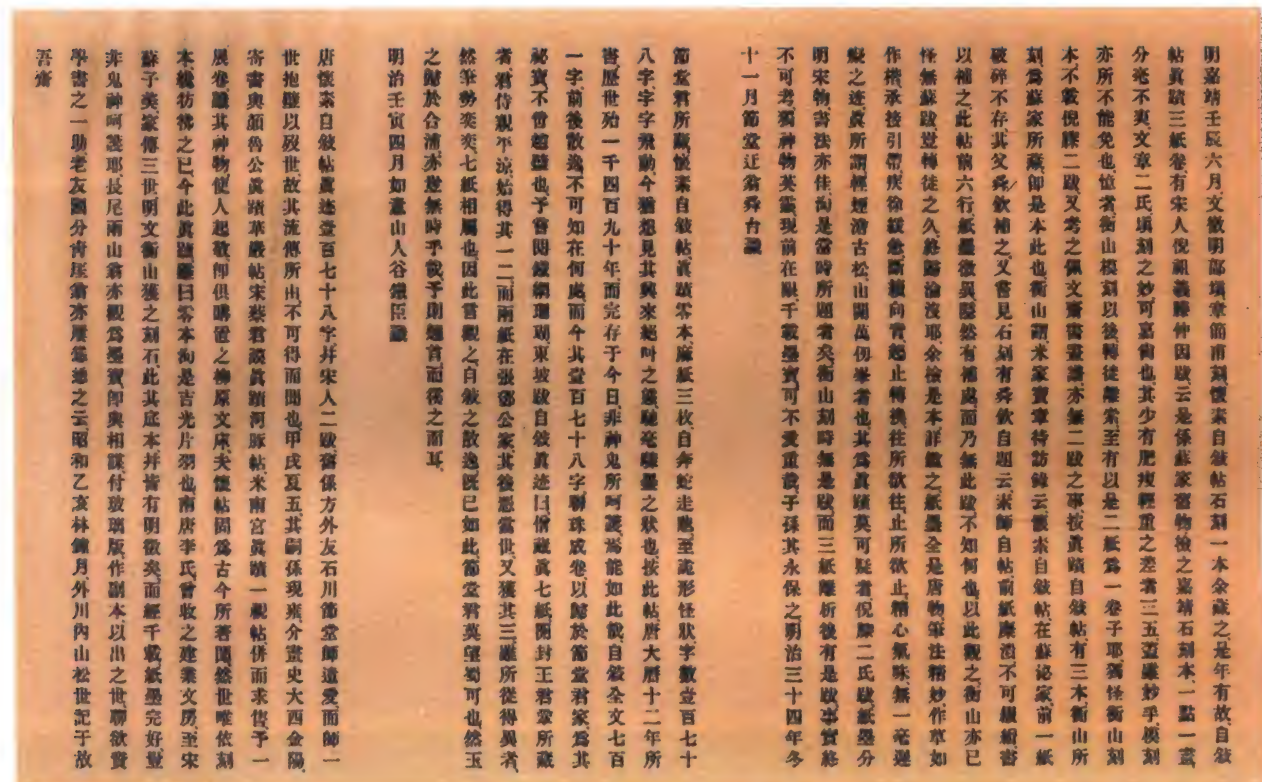 明嘉靖壬辰六月文徵明鄗塲章簡甫刻懷素自敍帖石刻一本余藏之是年有故自敍
帖眞蹟三紙卷有宋人倪祖義滕仲因跋云是係蘇家舊物檢之嘉靖石刻本一點一畫
分毫不爽文章二氏頃刻之妙可嘉尙也其少有肥瘦輕重之差者三五葢雖妙乎摸刻
亦所不能免也憶者衡山模刻以後轉徒離索至有以是二紙爲一卷子耶獨怪衡山刻
本不載倪滕二跋又考之佩文齋書畫譜亦無二跋之事按眞蹟自敍帖有三本衡山所
刻爲蘇家所藏卽是本此也衡山謂米家寶章待訪錄云懷素自敍帖在蘇泌家前一紙
破碎不存其父舜欽補之又嘗見石刻有舜欽自題云素師自帖前紙糜潰不可綴緝書
以補之此帖前六行紙墨微異隱然有補處而乃無此跋不知何也以此觀之衡山亦已
怪無蘇跋豈轉徒之久終歸淪沒耶余檢是本詳鑑之紙墨全是唐物筆法精妙作草如
作楷承接引帶疾徐緩急斷續向背起止轉換往所欲往止所欲止精心氣味無一毫遲
疑之迹眞所謂輕煙澹古松山開萬仞峯者也其爲眞蹟莫可疑者倪滕二氏跋紙墨分
明宋物書法亦佳洵是當時所題者矣衡山刻時無是跋而三紙離析後有是跋事實終
不可考獨神物英靈現前在眼千載墨寶可不愛重哉子孫其永保之明治三十四年冬
十一月節堂迂翁舜台識
節堂君所藏懷素自敍帖眞蹟零本麻紙三枚自奔蛇走虺至詭形怪狀字數壹百七十
八字字字飛動今猶想見其興來絕叫之態馳毫驟墨之狀也按此帖唐大曆十二年所
書歷世殆一千四百九十年而完存于今日非神鬼所呵護焉能如此哉自敍全文七百
一字前後散逸不可知在何處而今其壹百七十八字聯珠成卷以歸於節堂君家爲其
祕寶不啻趙璧也予嘗閱鐵網珊瑚東坡跋自敍眞迹曰僧藏眞七紙開封王君鞏所藏
者君侍親平凉始得其一二而兩紙在張鄧公家其後悉當世又獲其三雖所從得異者
然筆勢奕奕七紙相屬也因此言觀之自敍之散逸旣已如此節堂君英望蜀可也然玉
之歸於合浦亦豈無時乎哉予則翹首而俟之而耳
明治壬寅四月如意山人谷鐵臣識
唐懷素自敍帖眞迹壹百七十八字幷宋人二跋舊係方外友石川節堂師遺愛而師一
世抱璧以歿世故其流傳所出不可得而聞也甲戌夏五其嗣孫現雍介畫史大西金陽
寄書與顏魯公眞蹟華嚴帖宋蔡君謨眞蹟河豚帖米南宮眞蹟一觀帖倂而求售予一
展卷識其神物使人起敬卽俱購置之柳原文庫夫懷帖固爲古今所著聞然世唯依刻
本纔彷彿之已今此眞蹟雖曰零本洵是吉光片羽也南唐李氏曾收之建業文房至宋
蘇子美家傳三世明文衡山獲之刻石此其底本幷皆有明徵矣而經千載紙墨完好豈
非鬼神呵護耶長尾雨山翁亦觀爲墨寶卽與相謀付玻璃版作副本以出之世聊欲資
學書之一助老友國分靑厓翁亦屢慫慂之云昭和乙亥林鐘月外川內山松世記于故
吾齋